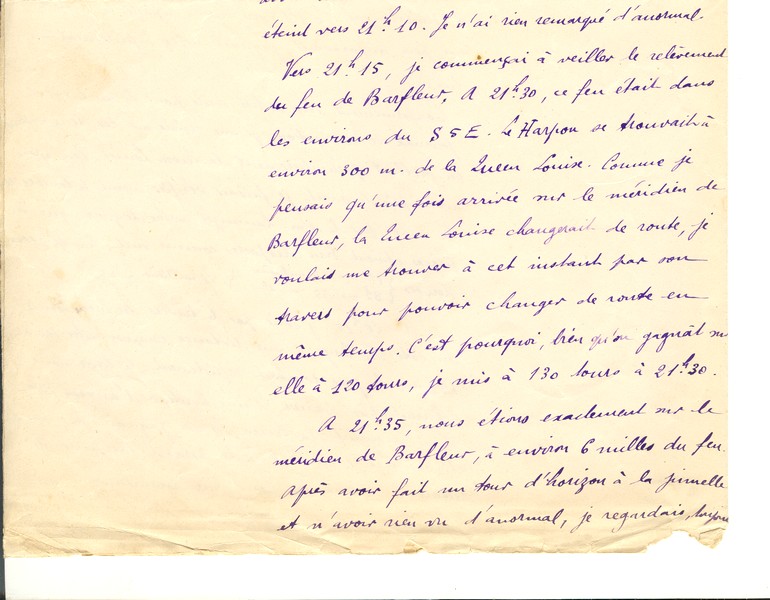 éteint vers 21h10. Je n'ai rien remarqué d'anormal.
Vers 21h15, je commençai à veiller le relèvement
du feu de Barfleur. A 21h30, ce feu était dans
les environs du SSE. Le Harpon se trouvait à
environ 300 m. de la Queen Louise. Comme je
pensais qu'une fois arrivée sur le méridien de
Barfleur, la Queen Louise changerait de route, je
voulais me trouver à cet instant par son
travers pour pouvoir changer de route en
même temps. C'est pourquoi, bien qu'on gagnât sur
elle à 120 tours, je mis à 130 tours à 21h30.
A 21h35, nous étions exactement sur le
méridien de Barfleur, à environ 6 milles du feu.
Après avoir fait un tour d'horizon à la jumelle
et n'avoir rien vu d'anormal, je regardais,